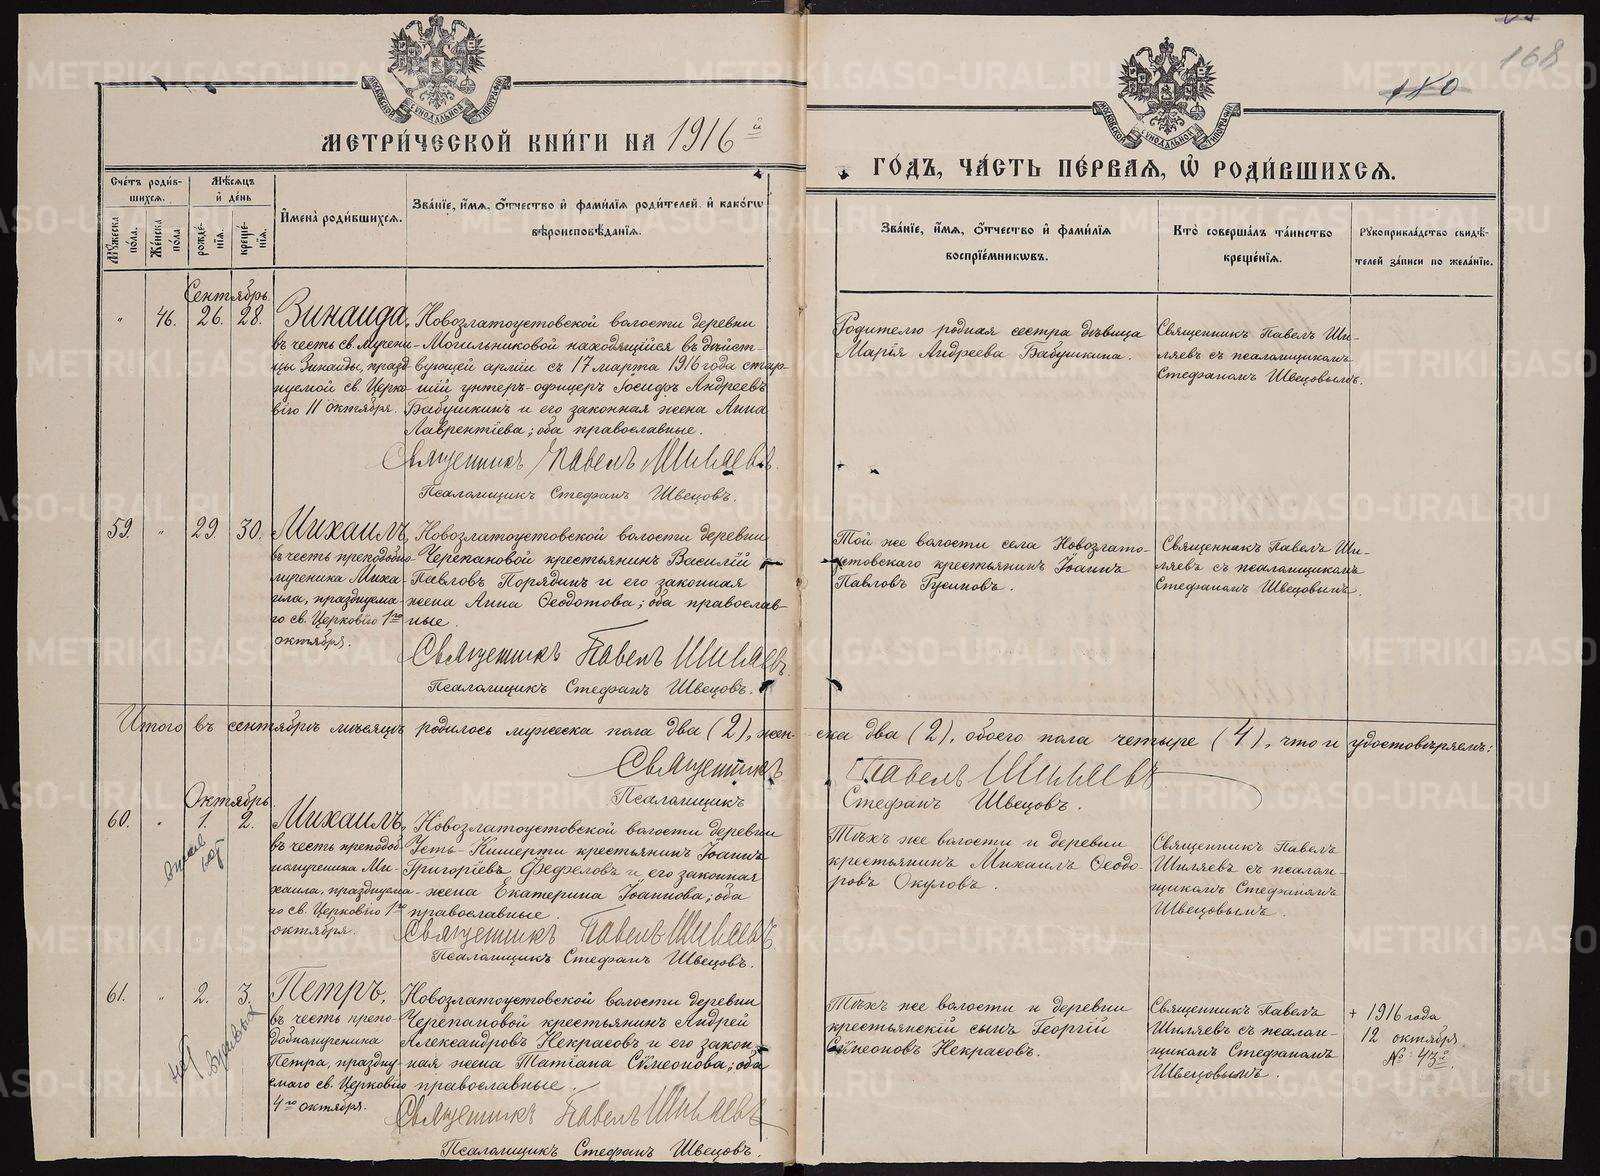 168
180
МОСКОВСКОЙ СѴНОДАЛЬНОЙ ТИПОГРАФІИ
МОСКОВСКОЙ СѴНОДАЛЬНОЙ ТИПОГРАФІИ
МЕТРИ́ЧЕСКОЙ КНИ́ГИ НА 1916 й
ГО́ДЪ, ЧА́СТЬ ПЕ́РВАЯ, Ѡ҆ РОДИ́ВШИХСЯ.
Сче́тъ роди́в-
шихся.
Мѣ́сяцъ
и҆ де́нь
Мꙋ́жеска по́ла.
Же́нска по́ла
рожде́-
нїя.
креще́-
нїя.
И҆мена̀ роди́вшихся.
Зва́нїе, и҆́мя, ѻ҆́тчество и҆ фами́лїя роди́телей, и҆ како́гѡ
вѣроисповѣ́данїя.
Зва́нїе, и҆́мя, ѻ҆́тчество и҆ фами́лїя
воспрїе́мникѡвъ.
Кто̀ соверша́лъ та́инство
креще́нїя.
Рꙋкоприкла́дство свидѣ́-
телей за́писи по жела́нїю.
Сентябрь.
" 46. 26. 28.
Зинаида,
въ честь св. мучени-
цы Зинаиды, празд-
нуемой св. Церко-
вію 11 октября.
Новозлатоустовской волости деревни
Могильниковой находящійся въ дѣйст-
вующей арміи съ 17 марта 1916 года стар-
шій унтеръ-офицеръ Іосифъ Андреевъ
Бабушкинъ и его законная жена Анна
Лаврентіева; оба православные.
Священникъ Павелъ Шиляевъ.
Псаломщикъ Стефанъ Швецовъ.
Родителю родная сестра дѣвица
Марія Андреева Бабушкина.
Священникъ Павелъ Ши-
ляевъ съ псаломщикомъ
Стефаномъ Швецовымъ.
59. " 29. 30.
Михаилъ,
въ честь преподобно-
мученика Миха-
ила, празднуема-
го св. Церковію 1го
октября.
Новозлатоустовской волости деревни
Черепановой крестьянинъ Василій
Павловъ Порядинъ и его законная
жена Анна Ѳеодотова; оба православ-
ные.
Священникъ Павелъ Шиляевъ.
Псаломщикъ Стефанъ Швецовъ.
Той же волости села Новозлато-
устовскаго крестьянинъ Іоаннъ
Павловъ Гусиновъ.
Священникъ Павелъ Ши-
ляевъ съ псаломщикомъ
Стефаномъ Швецовымъ.
Итого въ сентябрѣ мѣсяцѣ родилось мужеска пола два (2), жен-
ска два (2), обоего пола четыре (4), что и удостовѣряемъ:
Священникъ Павелъ Шиляевъ
Псаломщикъ Стефанъ Швецовъ.
Октябрь.
60. " 1. 2.
Михаилъ,
въ честь преподоб-
номученика Ми-
хаила, празднуема-
го св. Церковію 1го
октября.
Новозлатоустовской волости деревни
Усть-Кишерти крестьянинъ Іоаннъ
Григоріевъ Фефеловъ и его законная
жена Екатерина Іоаннова; оба
православные.
Священникъ Павелъ Шиляевъ
Псаломщикъ Стефанъ Швецовъ.
Тѣхъ же волости и деревни
крестьянинъ Михаилъ Ѳеодо-
ровъ Окуловъ.
Священникъ Павелъ
Шиляевъ съ псалом-
щикомъ Стефаномъ
Швецовымъ.
61. " 2. 3.
Петръ,
въ честь препо-
добномученика
Петра, праздну-
емаго св. Церковію
4го октября.
Новозлатоустовской волости деревни
Черепановой крестьянинъ Андрей
Александровъ Некрасовъ и его закон-
ная жена Татіана Сѵмеонова; оба
православные.
Священникъ Павелъ Шиляевъ
Псаломщикъ Стефанъ Швецовъ.
Тѣхъ же волости и деревни
крестьянскій сынъ Георгій
Сѵмеоновъ Некрасовъ.
Священникъ Павелъ
Шиляевъ съ псалом-
щикомъ Стефаномъ
Швецовымъ.
+ 1916 года
12 октября
№ 43й.
METRIKI.GASO-URAL.RU